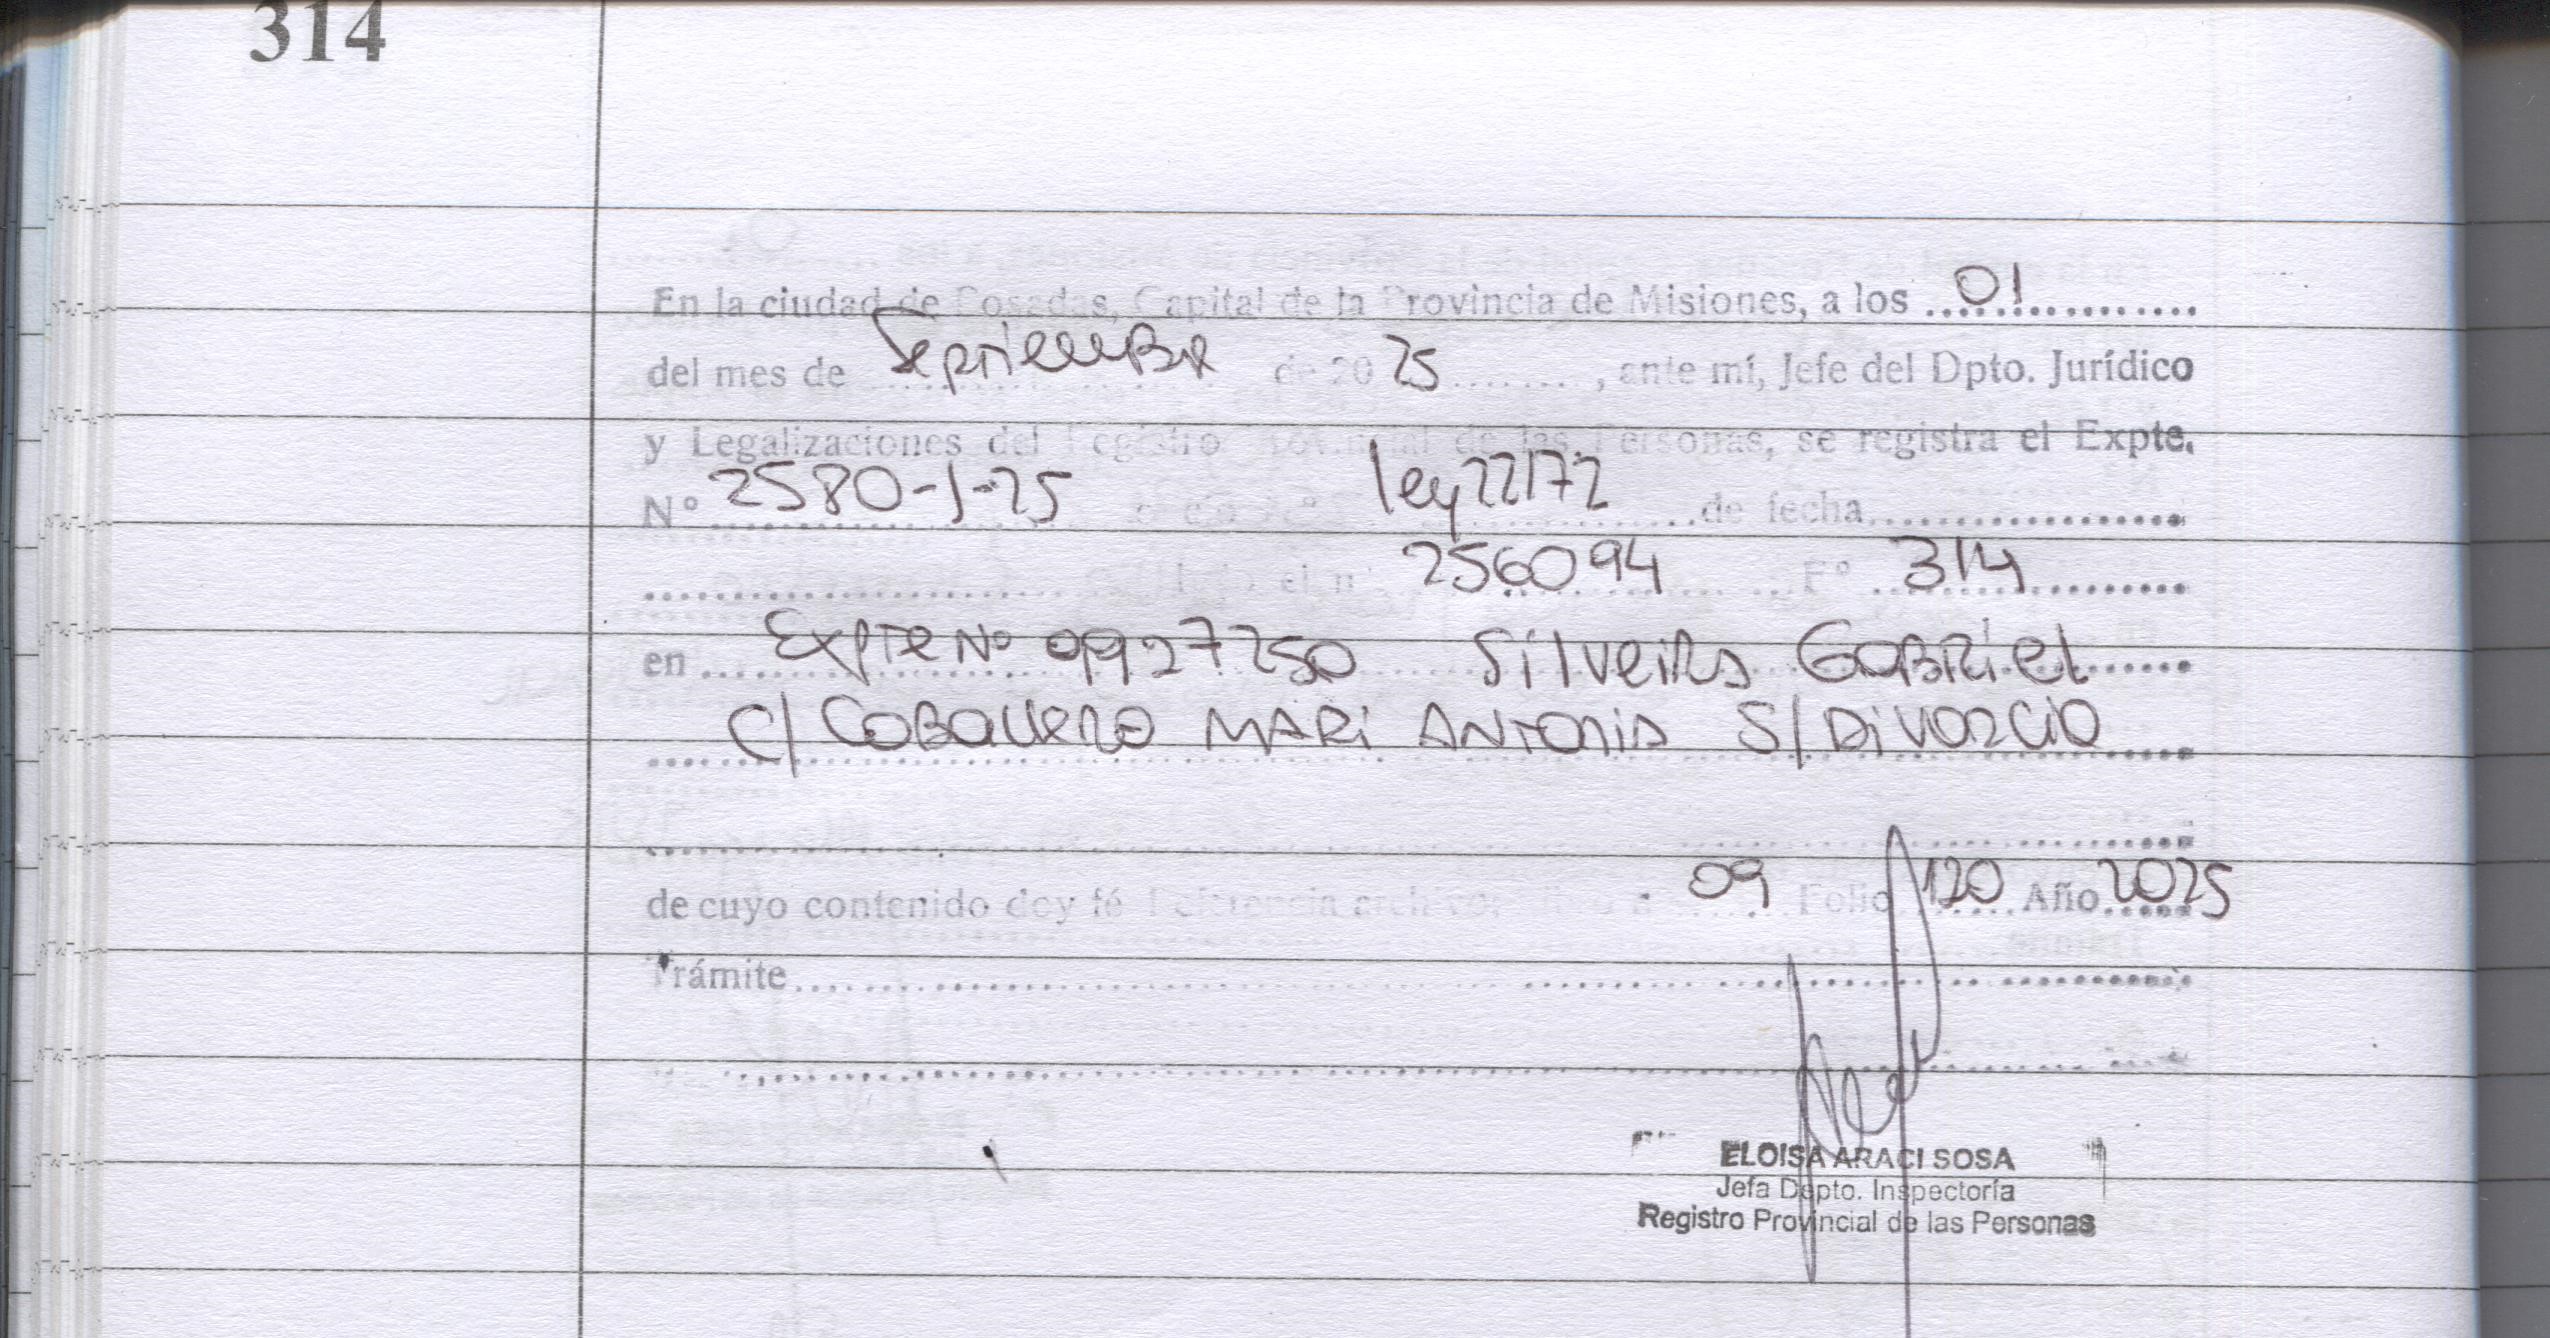 314
En la ciudad de Posadas, Capital de la Provincia de Misiones, a los 01
del mes de Septiembre de 20 25, ante mí, Jefe del Dpto. Jurídico
y Legalizaciones del Registro Provincial de las Personas, se registra el Expte.
Nº 2580-J-25 ley 22172 de fecha
256094 Fº 314
en Expte Nº 0927250 Silveira Gabriel
c/ Caballero Mari Antonia S/ Divorcio
de cuyo contenido doy fé 09 Folio 120 Año 2025
Trámite
ELOISA ARACI SOSA
Jefa Dpto. Inspectoría
Registro Provincial de las Personas